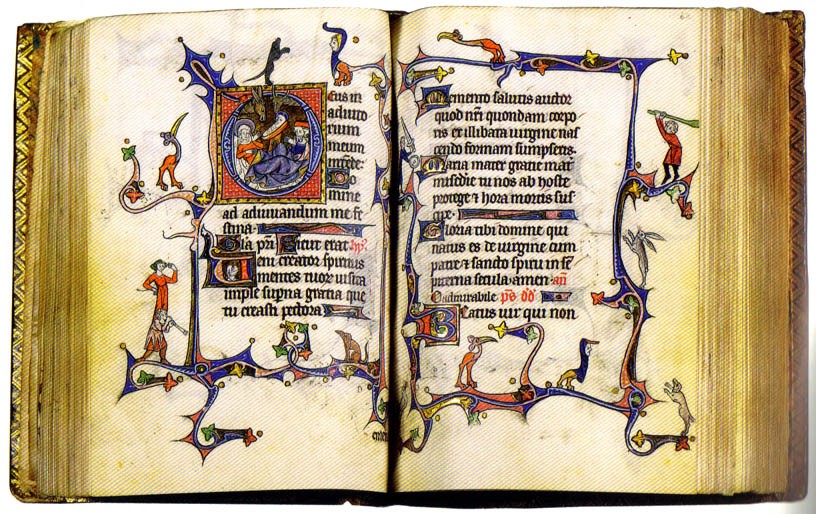 Deus in
adiuto
rium
meum
intende:
Do
mine
ad adiuuandum me fe
stina.
Glia pri. Sicut erat
Veni creator spiritus
mentes tuor uisita
imple supna gratia que
tu creasti pectora
Memento salutis auctor
quod nri quondam corpo
ris ex illibata uirgine nas
cendo formam sumpseris.
Maria mater gratie mat
misedie tu nos ab hoste
protege & hora mortis sus
cipe.
Gloria tibi domine qui
natus es de uirgine cum
patre & sancto spiritu in se
piterna secula. amen. an
O admirabile. ps. dd
Beatus uir qui non